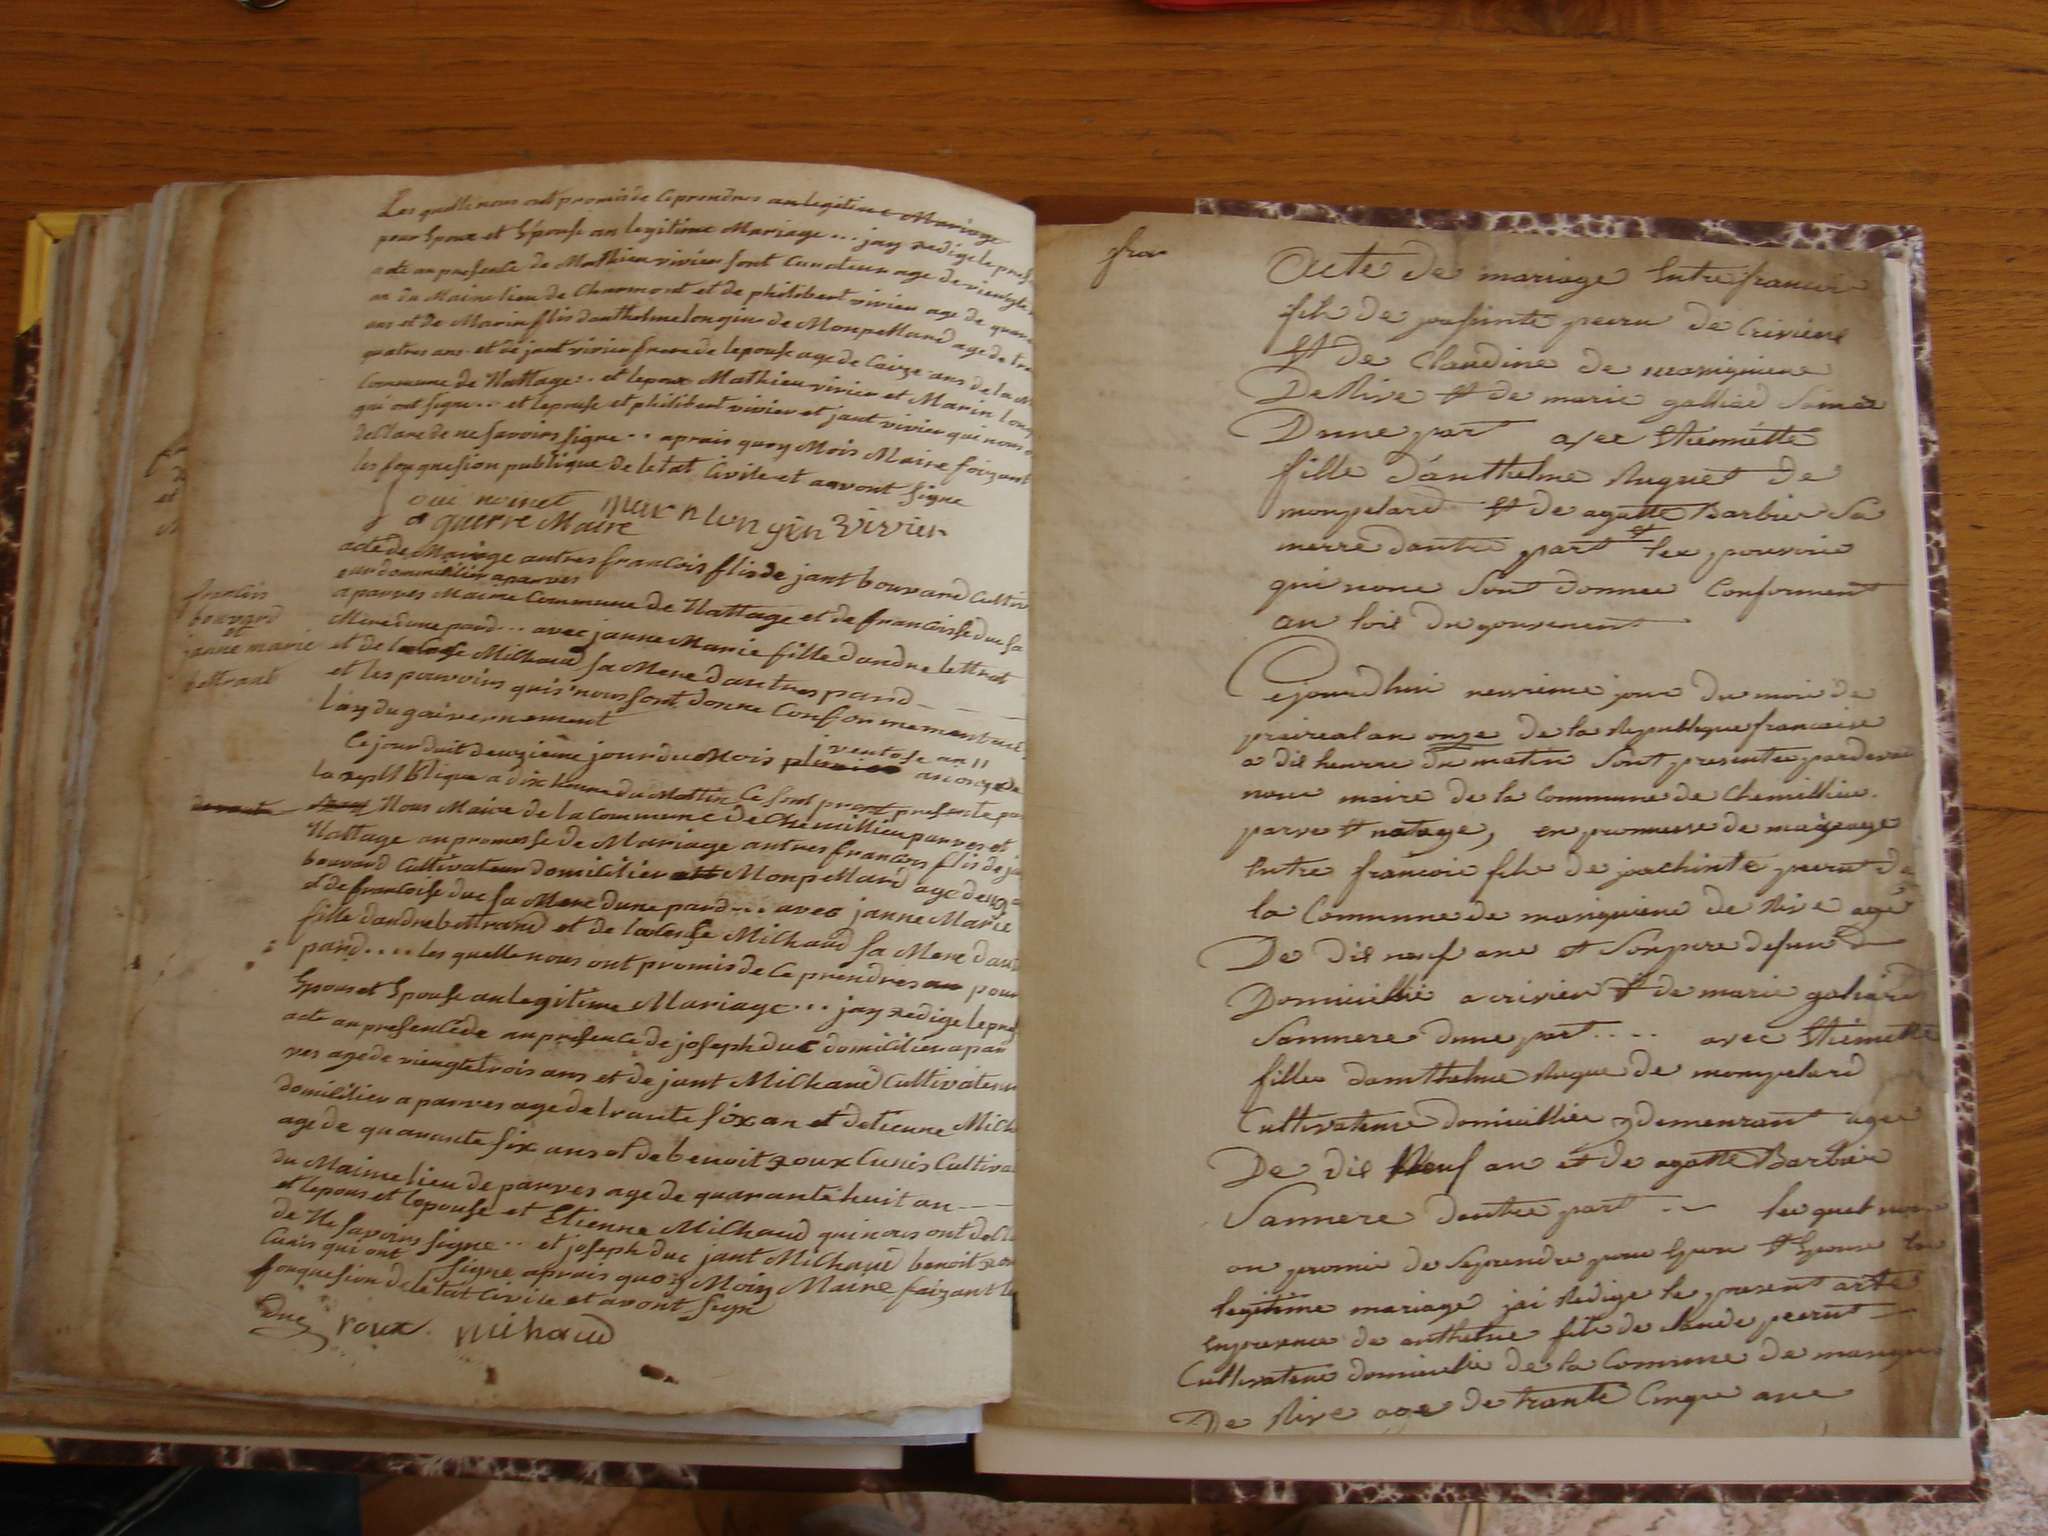 Les quelle nous ont promis de ce prendres an legitime Mariage
pour Epoux et Epouse an legitime Mariage ... jay redige le pres
acte an presence de Mathieu vivier age de
an du Maime lieu de Charmont et de philibert vivier age de quara
ans et de Marin flis danthelme longin de Monpellard age de tra
quatres ans et de jant vivier frere de lepouse age de ans de la
Commune de Nattage .. et lepoux Mathieu vivier et Marin long
qui ont signe ... et lepouse et philibert vivier et jant vivier qui nous
declare de ne savoirs signe .. aprais quoy Mois Maire faizant
les fonquesion publique de letat Civile et avont signe
marn lon gin vivier
guerre Maire
acte de Mariage autres francois flis de jant bouvard Cultiv
eur domicilier a parves
a parves Maime Commune de Nattage et de francoisse duc sa
Mere dune pard ... avec janne Marie fille dandre bettrat
et de Milhaud sa Mere dautres pard
et les pouvoirs qui nous sont donne Conformement aux
loy du gaivernement
francois
bouvard
et
janne marie
bettrant
Ce jour duit deuzieme jour du Mois pluviose ventose an 11 an onze de
la republique a dix heure du Mattin Ce sont presente par
devant Nous Maire de la Commune de Chemillieu parves et
Nattage an promesse de Mariage autres francois flis de ja
bouvard Cultivateur domicilier Monpellard age de 29 a
et de francoise duc sa Mere dune pard ... avec janne Marie
fille dandre bettrand et de Milhaud sa Mere dau
pard .... les quelle nous ont promis de ce prendres an pour
Epoux et Epouse an legitime Mariage ... jay redige le pres
acte an presence de an presence de joseph duc domicilier a par
ves age de viengt trois ans et de jant Milhaud Cultivateur
domicilier a parves age de trante six an et detienne Milh
age de quarante six ans et de benoit roux Cunis Cultiva
du Maime lieu de parves age de quarante huit an
et lepoux et lepouse et Etienne Milhaud qui nous ont decl
de Ne savoirs signe .. et joseph duc jant Milhaud benoit rou
Cunis qui ont signe aprais quoy Moiy Maire faizant le
fonquesion de letat Civile et avont signe
Duc roux milhaud
fra
Acte de mariage Entre francoix
fils de peeru de Crivieux
Et de Claudine de massignieux
De Rive Et de marie galliard samere
Dune part avec Etiennette
fille d'anthelme Ruguet de
monpelard et de agatte Barbier Sa
merre dautre part et lex pouvoire
qui nous Sont donnee Conforment
au lois du gouvenent
Cejourdhui neuvieme jour du moi de
preireal an onze de la Republique francaise
a dis heurre du matin Sont presentee pardevan
nous maire de la Commune de Chemillieu.
parve et natage, en prommesse de mariage
Entre francois fils de joachinte peerut de
la Commune de masignieux de Rive age
De dis neuf ans et Son pere defunt
Domicillie a crivieu Et de marie galiard
Sanmere dune part .... avec Etiennette
filles damthelme Rugue de monpelard
Cultivateur domicillier demeurant agee
De dis Neuf an et de agatte Barbier
Sanmere dautre part .. les quel nous
on promis de Seprendre pour Epoux Et Epouse en
legitime mariage jai Redige le present acte
enpresence de anthelme fils de Claude peerut
Cultivateur domicillie de la Commune de masigni
De Rive age de trante Cinque ans